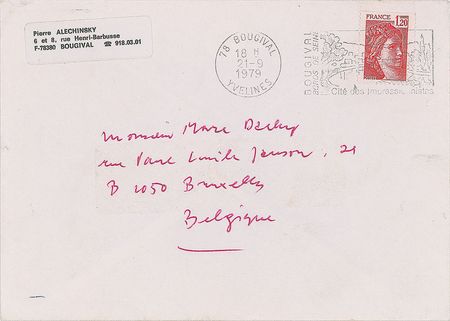 Pierre ALECHINSKY
6 et 8, rue Henri-Barbusse
F-78380 BOUGIVAL ☎ 918.03.01
78 BOUGIVAL
18 H
21-9
1979
YVELINES
BOUGIVAL
BORDS DE SEINE
Cité des Impressionnistes
FRANCE
1,20
Monsieur Marc
rue Paul Emile Janson, 21
B 1050 Bruxelles
Belgique